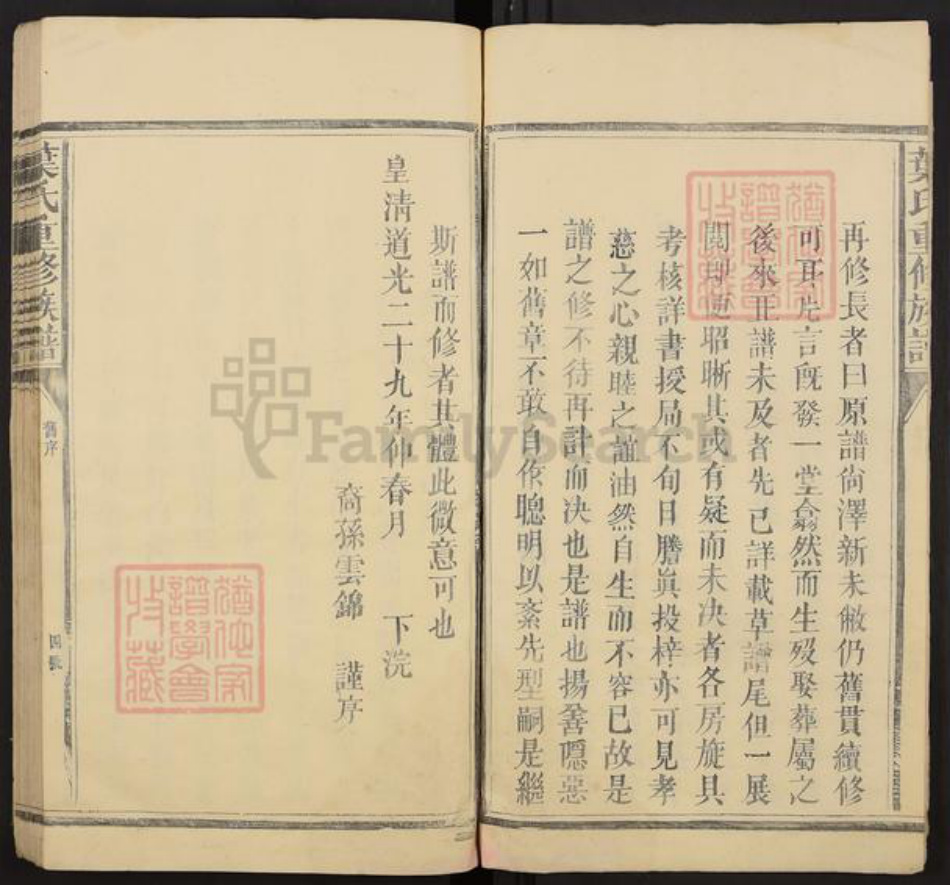 葉氏重修族譜
再修長者曰原譜尙澤新未敝仍舊貫續修
可耳片言旣發一堂翕然而生歿娶葬屬之
後來正譜未及者先已詳載草譜尾但一展
閱卽便昭晰其或有疑而未決者各房旋具
考核詳書授局不旬日謄眞投梓亦可見孝
慈之心親睦之誼油然自生而不容已故是
譜之修不待再計而決也是譜也揚善隱惡
一如舊章不敢自作聰明以紊先型嗣是繼
斯譜而修者其體此微意可也
皇清道光二十九年仲春月 下浣
裔孫雲錦 謹序
葉氏重修族譜
舊序
四號
FamilySearch